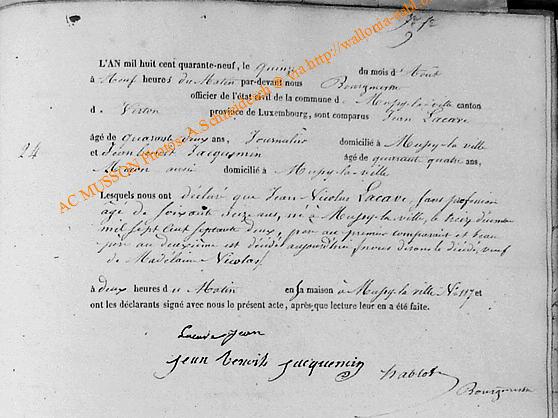 L'AN mil huit cent quarante-neuf, le quinze du mois d'Août
à neuf heures du Matin par-devant nous Bourgmestre
officier de l'état civil de la commune d e Mussy-la-ville canton
d e Virton province de Luxembourg, sont comparus Jean Lacave
âgé de quarante deux ans, Journalier domicilié à Mussy-la-ville
24
et Jean benoit Jacquemin âgé de quarante quatre ans,
Maçon aussi domicilié à Mussy-la-ville
Lesquels nous ont déclaré que Jean Nicolas Lacave, sans profession
âgé de soixante seize ans, né à Mussy-la-ville, le treize décembre
mil sept cent septante deux, père au premier comparait et beau
père au deuxième est décédé aujourd'hui, nous disons le décédé, veuf
de Madelaine Nicolas,
à deux heures du Matin en sa maison à Mussy-la-ville N° 117 et
ont les déclarants signé avec nous le présent acte, après que lecture leur en a été faite.
Lacave jean
jean benoit jacquemin
hablot
Bourgmestre
AC MUSSON Photos: A Schmickrath @ via http://wallonia-asbl.